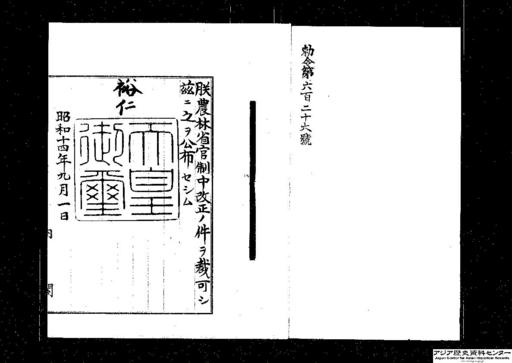 勅令第六百二十六號
朕農林省官制中改正ノ件ヲ裁可シ
茲ニ之ヲ公布セシム
裕仁
天皇御璽
昭和十四年九月一日
内閣
アジア歴史資料センター
Japan Center for Asian Historical Records